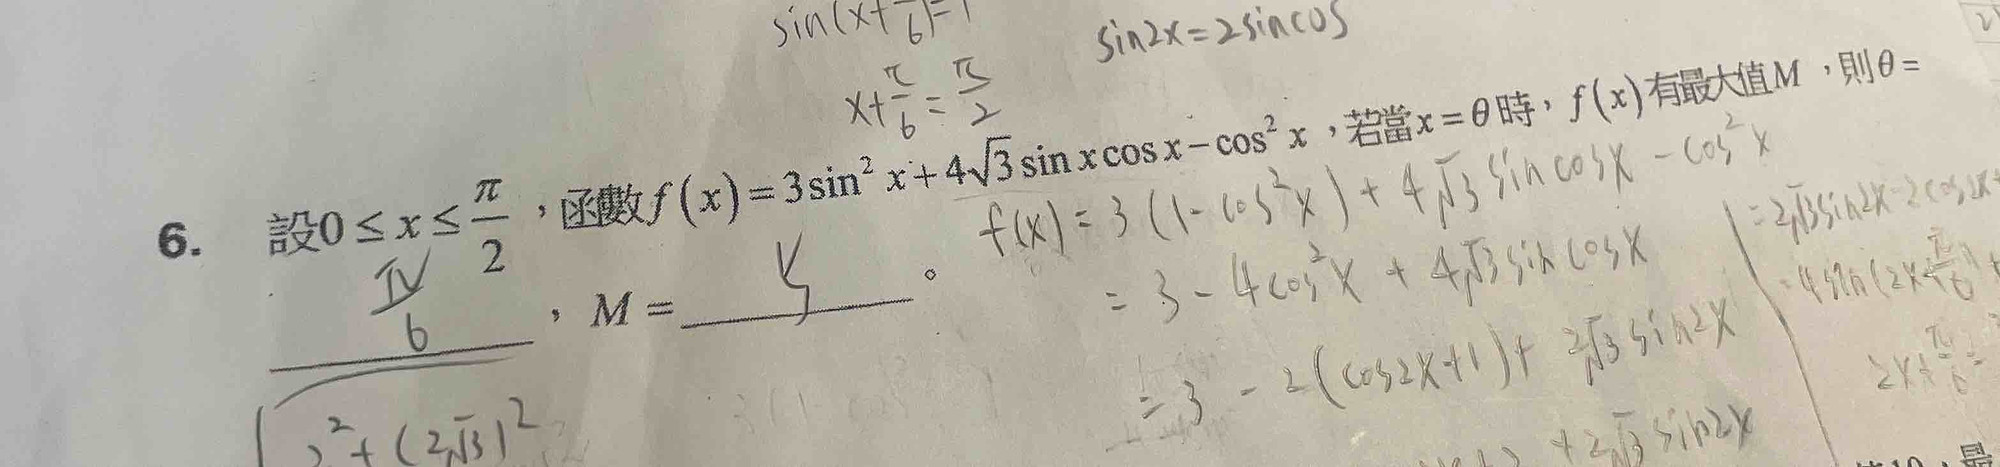 sin(x+π/6)=1
sin2x=2sincos
x+π/6=π/2
6. 設0≤x≤π/2，函數f(x)=3sin²x+4√3sinxcosx−cos²x，若當x=θ時，f(x)有最大值M，則θ=
π/6，M=5。
f(x)=3(1-cos²x)+4√3sincosx-cos²x
=3-4cos²x+4√3sincosx
=3-2(cos2x+1)+2√3sin2x
+2√3sin2x
=2√3sin2x-2cos2x+
=4sin(2x+π/6)+
2x+π/6=
2²+(2√3)²